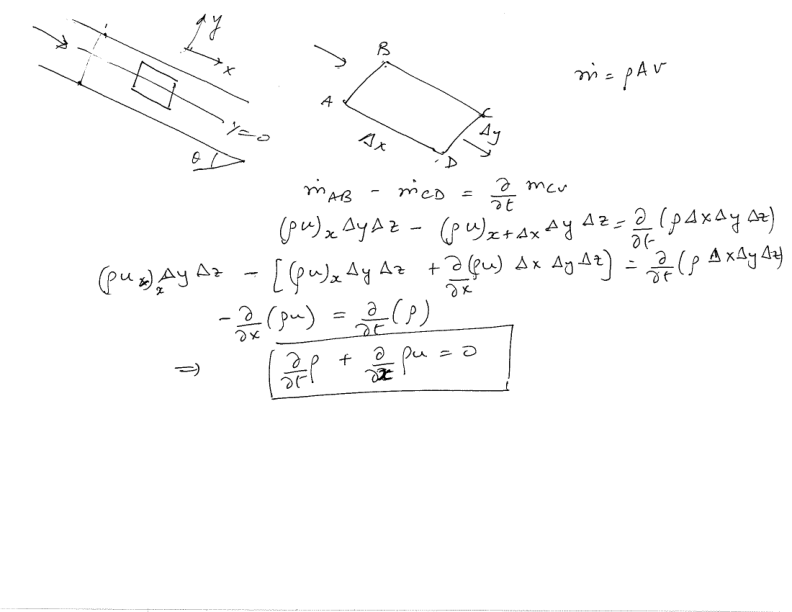 y
x
y=0
θ
B
A
C
Δx
Δy
D
ṁ = ρAV
ṁ_AB - ṁ_CD = ∂/∂t m_CV
(ρu)_x Δy Δz - (ρu)_x+Δx Δy Δz = ∂/∂t (ρ Δx Δy Δz)
(ρu_x)_x Δy Δz - [(ρu)_x Δy Δz + ∂/∂x (ρu) Δx Δy Δz] = ∂/∂t (ρ Δx Δy Δz)
-∂/∂x (ρu) = ∂/∂t (ρ)
⇒ ∂/∂t ρ + ∂/∂x ρu = 0